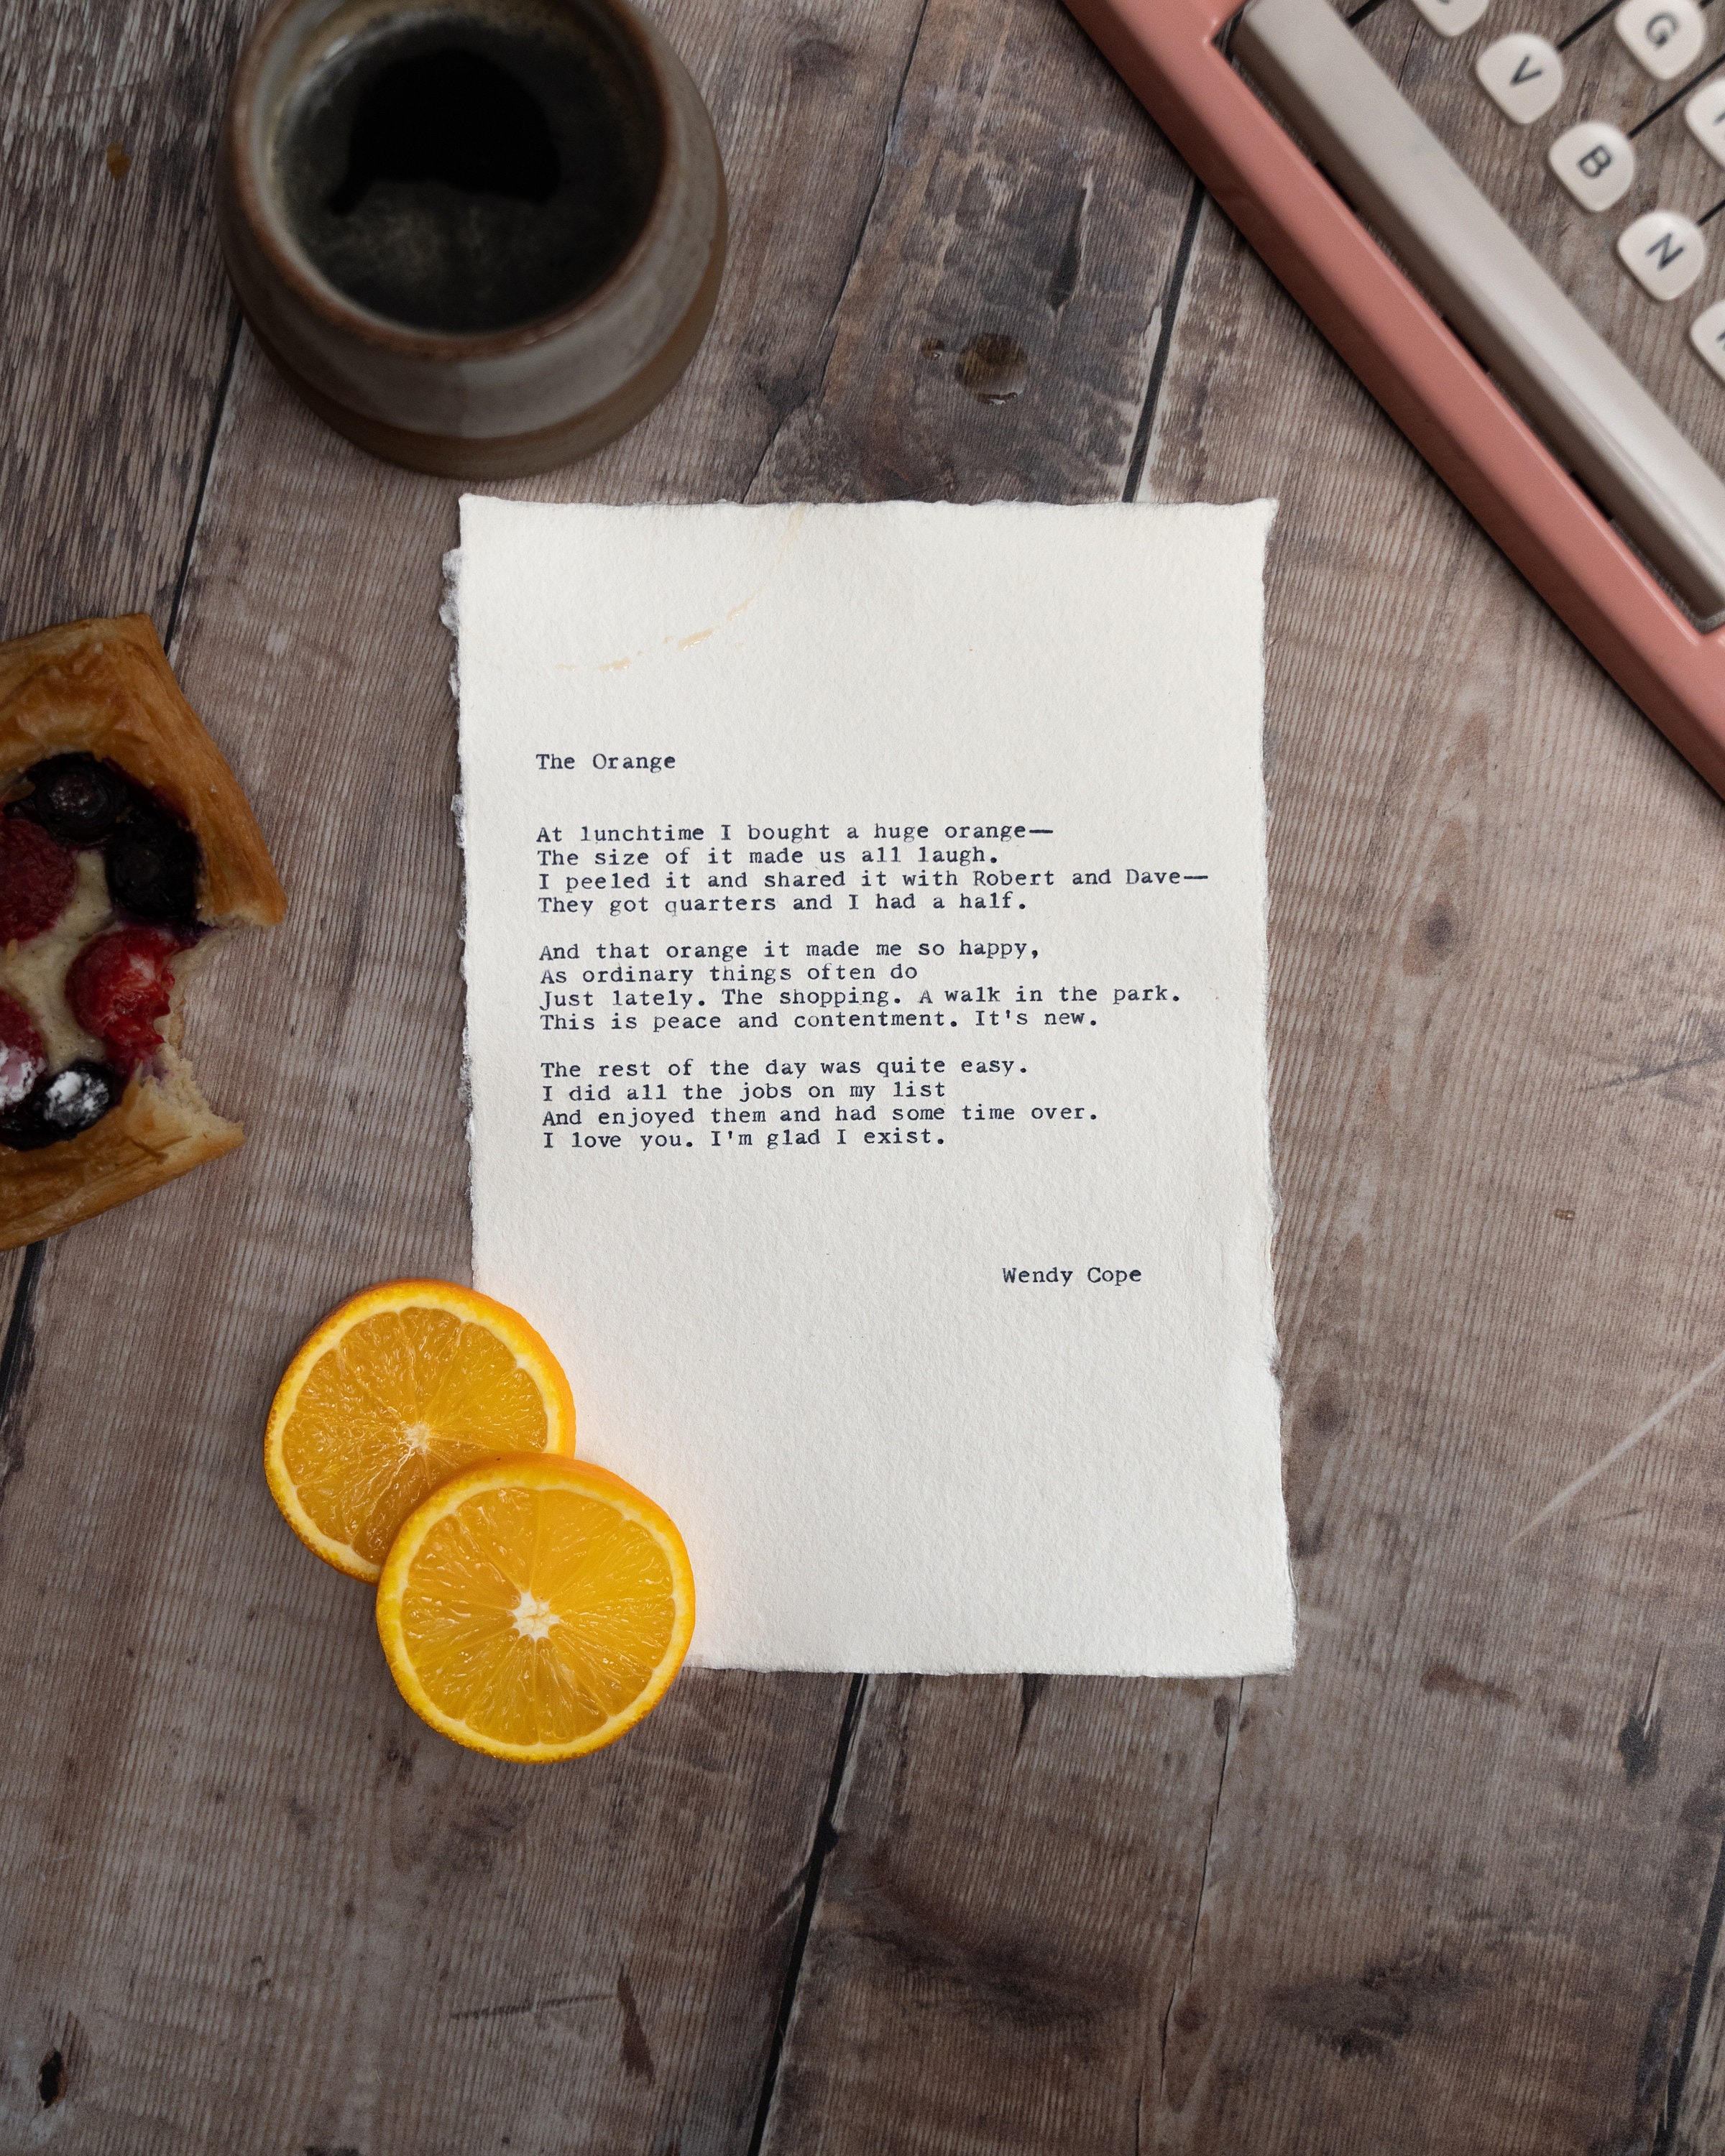 G
V
B
N
The Orange
At lunchtime I bought a huge orange—
The size of it made us all laugh.
I peeled it and shared it with Robert and Dave—
They got quarters and I had a half.
And that orange it made me so happy,
As ordinary things often do
Just lately. The shopping. A walk in the park.
This is peace and contentment. It's new.
The rest of the day was quite easy.
I did all the jobs on my list
And enjoyed them and had some time over.
I love you. I'm glad I exist.
Wendy Cope